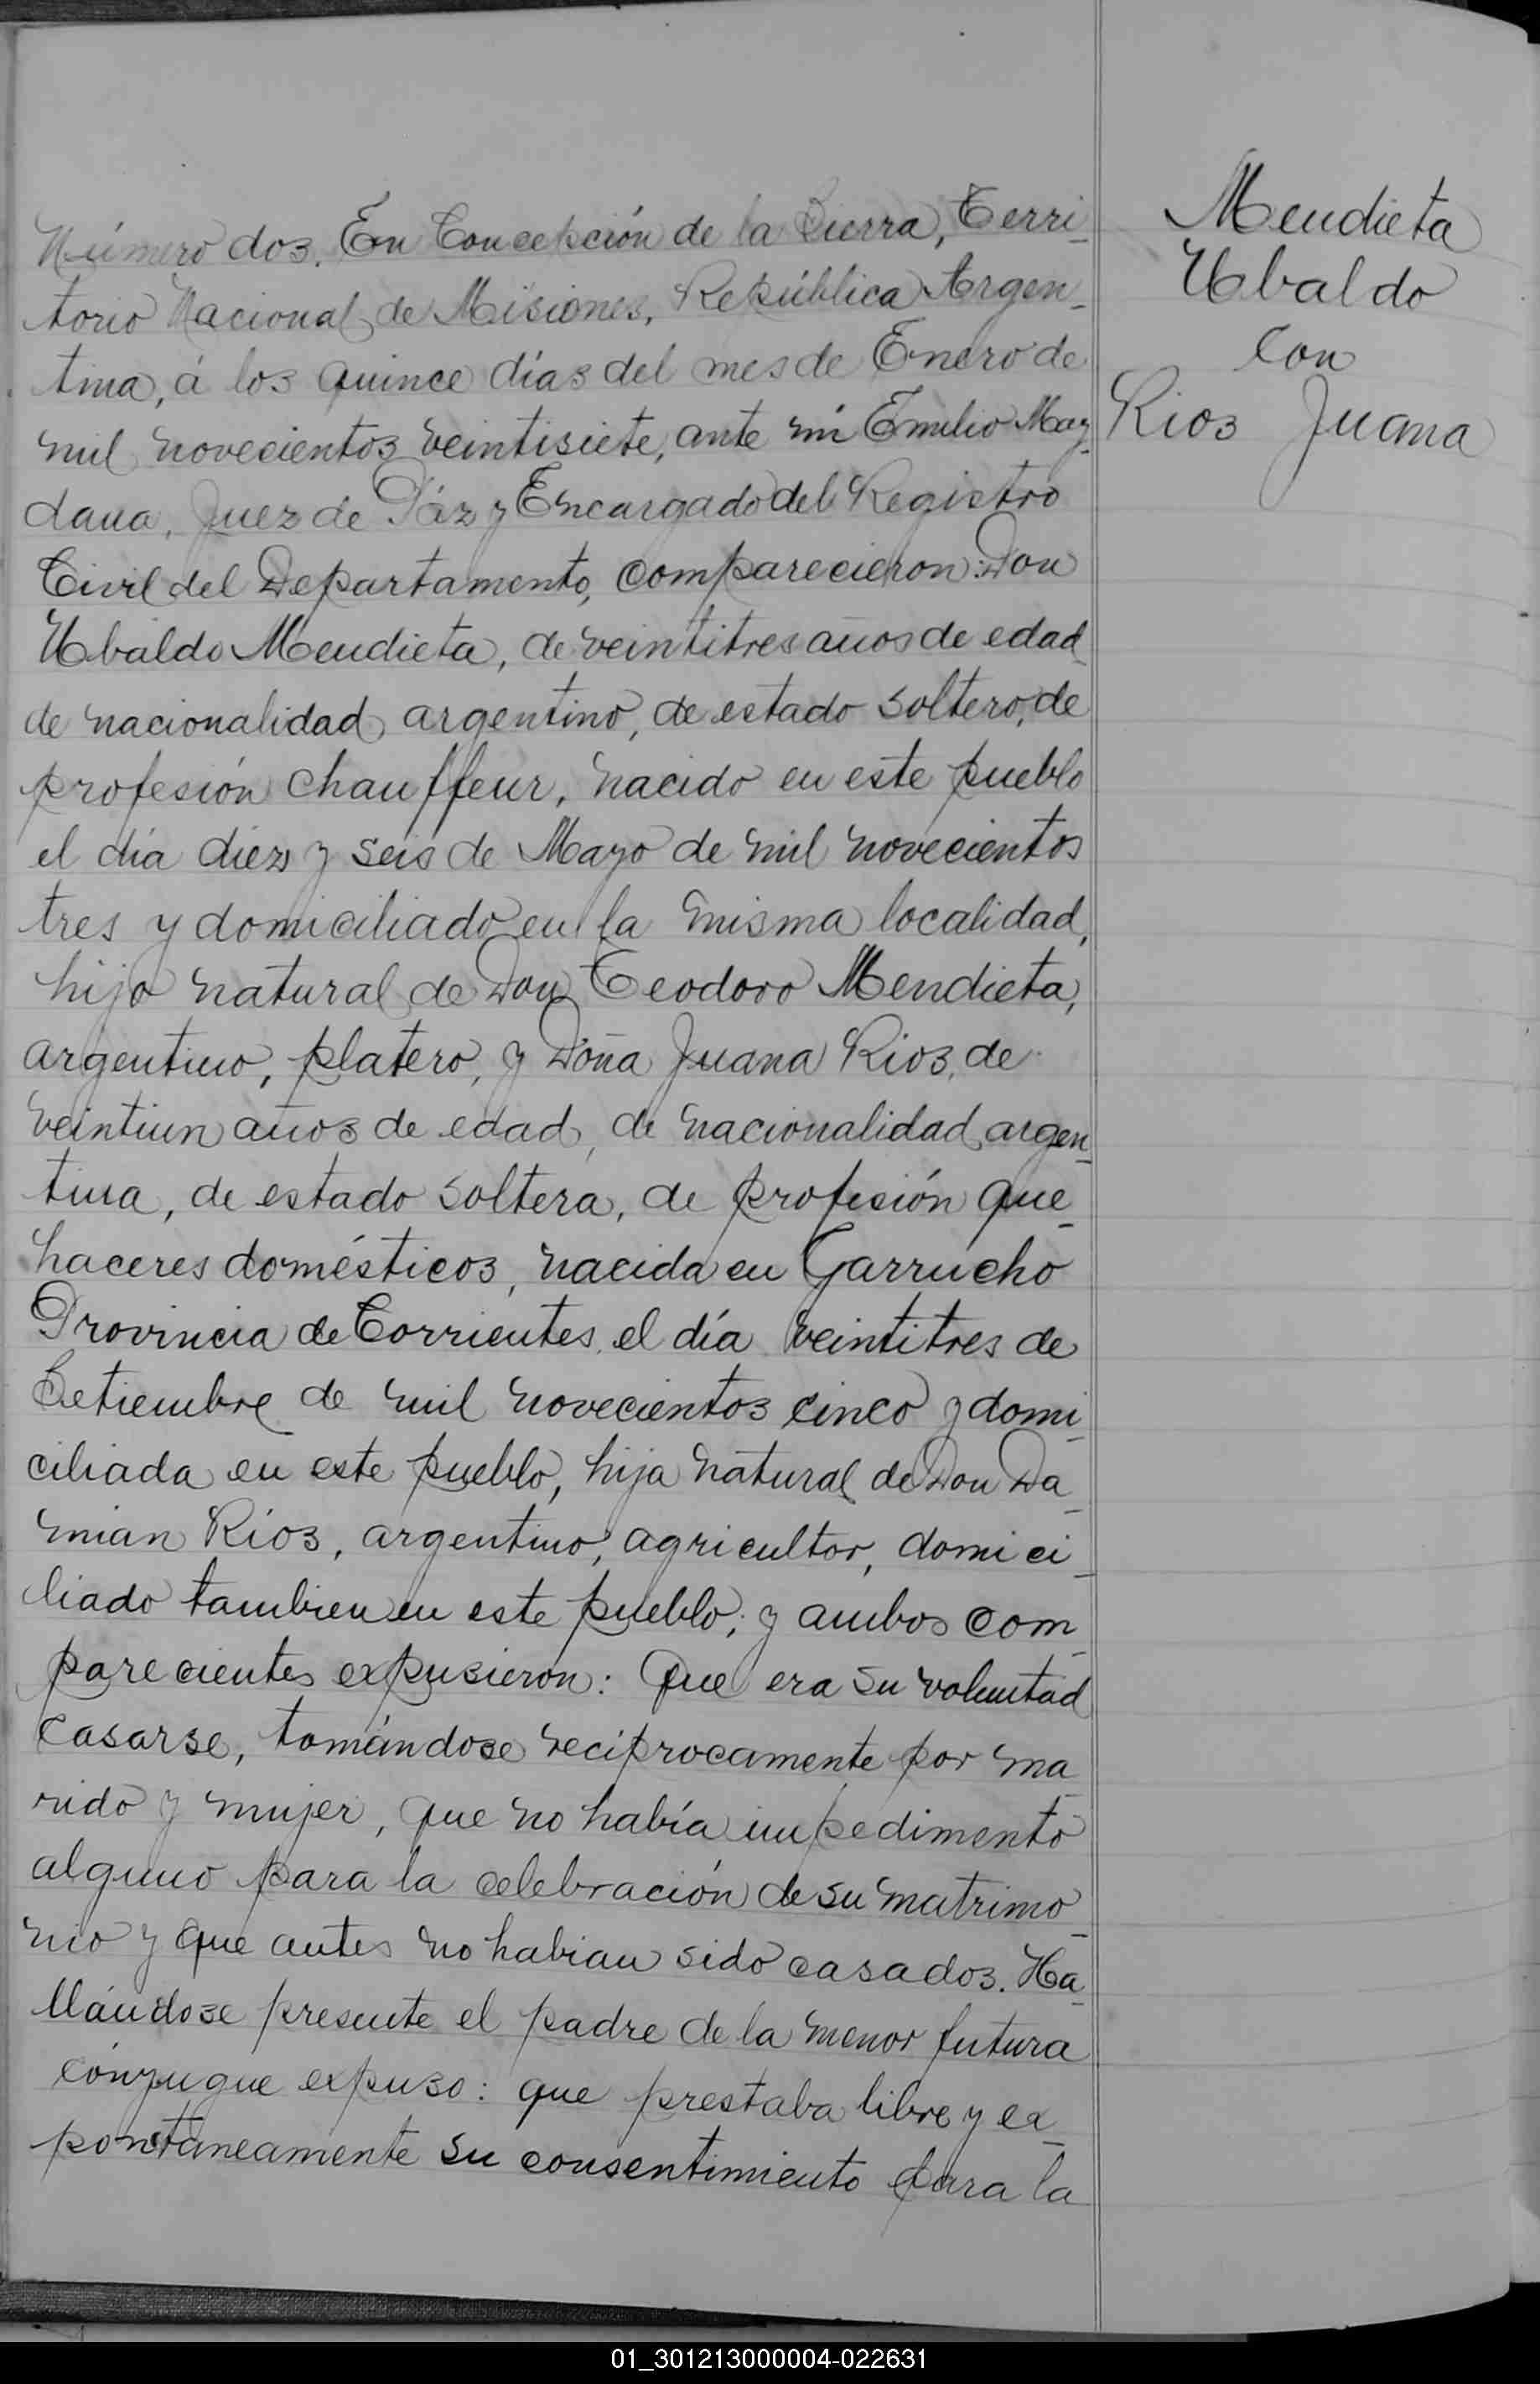 Número dos. En Concepción de la Sierra, Terri_
torio Nacional de Misiones, República Argen_
tina, á los quince días del mes de Enero de
mil novecientos veintisiete, ante mí Emilio May_
dana, Juez de Páz y Encargado del Registro
Civil del Departamento, comparecieron: Don
Ubaldo Mendieta, de veintitres años de edad
de nacionalidad argentino, de estado soltero, de
profesión chauffeur, nacido en este pueblo
el día diez y seis de Mayo de mil novecientos
tres y domiciliado en la misma localidad,
hijo natural de Don Teodoro Mendieta,
argentino, platero, y Doña Juana Rios, de
veintiun años de edad, de nacionalidad argen_
tina, de estado soltera, de profesión que_
haceres domésticos, nacida en Garrucho
Provincia de Corrientes, el día veintitres de
Setiembre de mil novecientos cinco y domi_
ciliada en este pueblo, hija natural de Don Da_
mian Rios, argentino, agricultor, domici_
liado tambien en este pueblo; y ambos com_
parecientes expusieron: Que era su voluntad
casarse, tomándose reciprocamente por ma_
rido y mujer, que no había impedimento
alguno para la celebración de su matrimo_
nio y que antes no habian sido casados. Ha_
llándose presente el padre de la menor futura
cónyugue expuso: que prestaba libre y ex_
pontáneamente su consentimiento para la
Mendieta
Ubaldo
con
Rios Juana
01_301213000004-022631